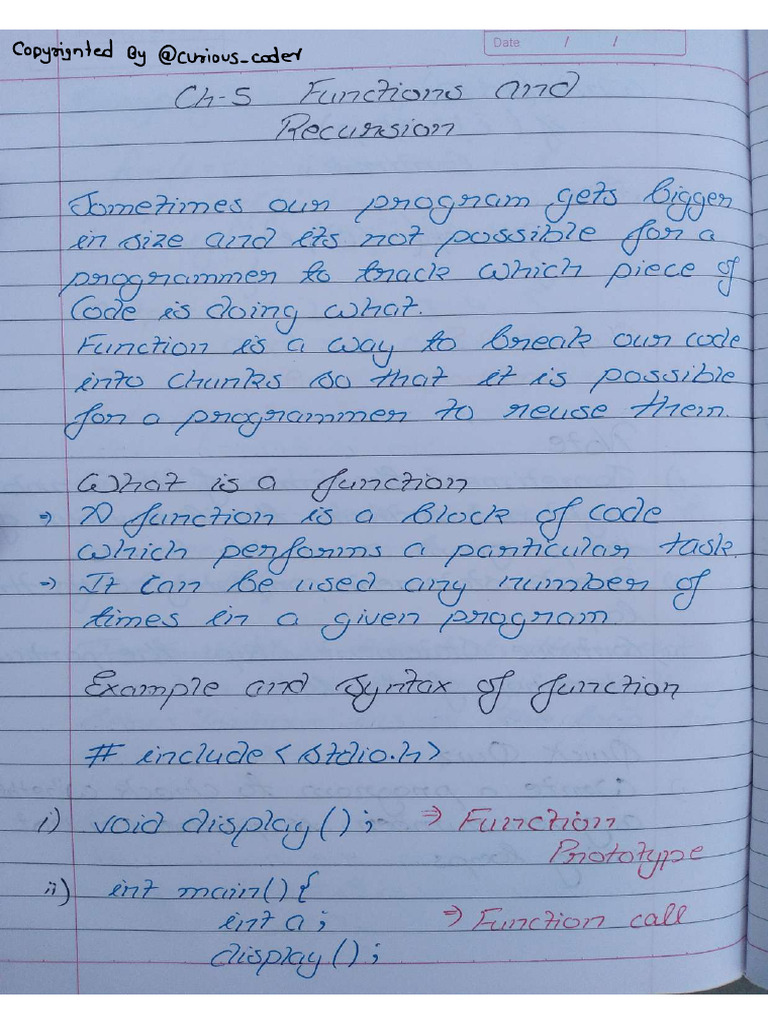 Copyrignted By @curious_coder
Date / /
Ch-5 Functions and
Recursion
Sometimes our program gets bigger
in size and its not possible for a
programmer to track which piece of
Code is doing what.
Function is a way to break our code
into chunks so that it is possible
for a programmer to reuse them.
What is a function
⇒ A function is a block of code
which performs a particular task.
⇒ It can be used any number of
times in a given program
Example and Syntax of function
# include <stdio.h>
i) void display(); ⇒ Function
Prototype
ii) int main() {
int a; ⇒ Function call
display();